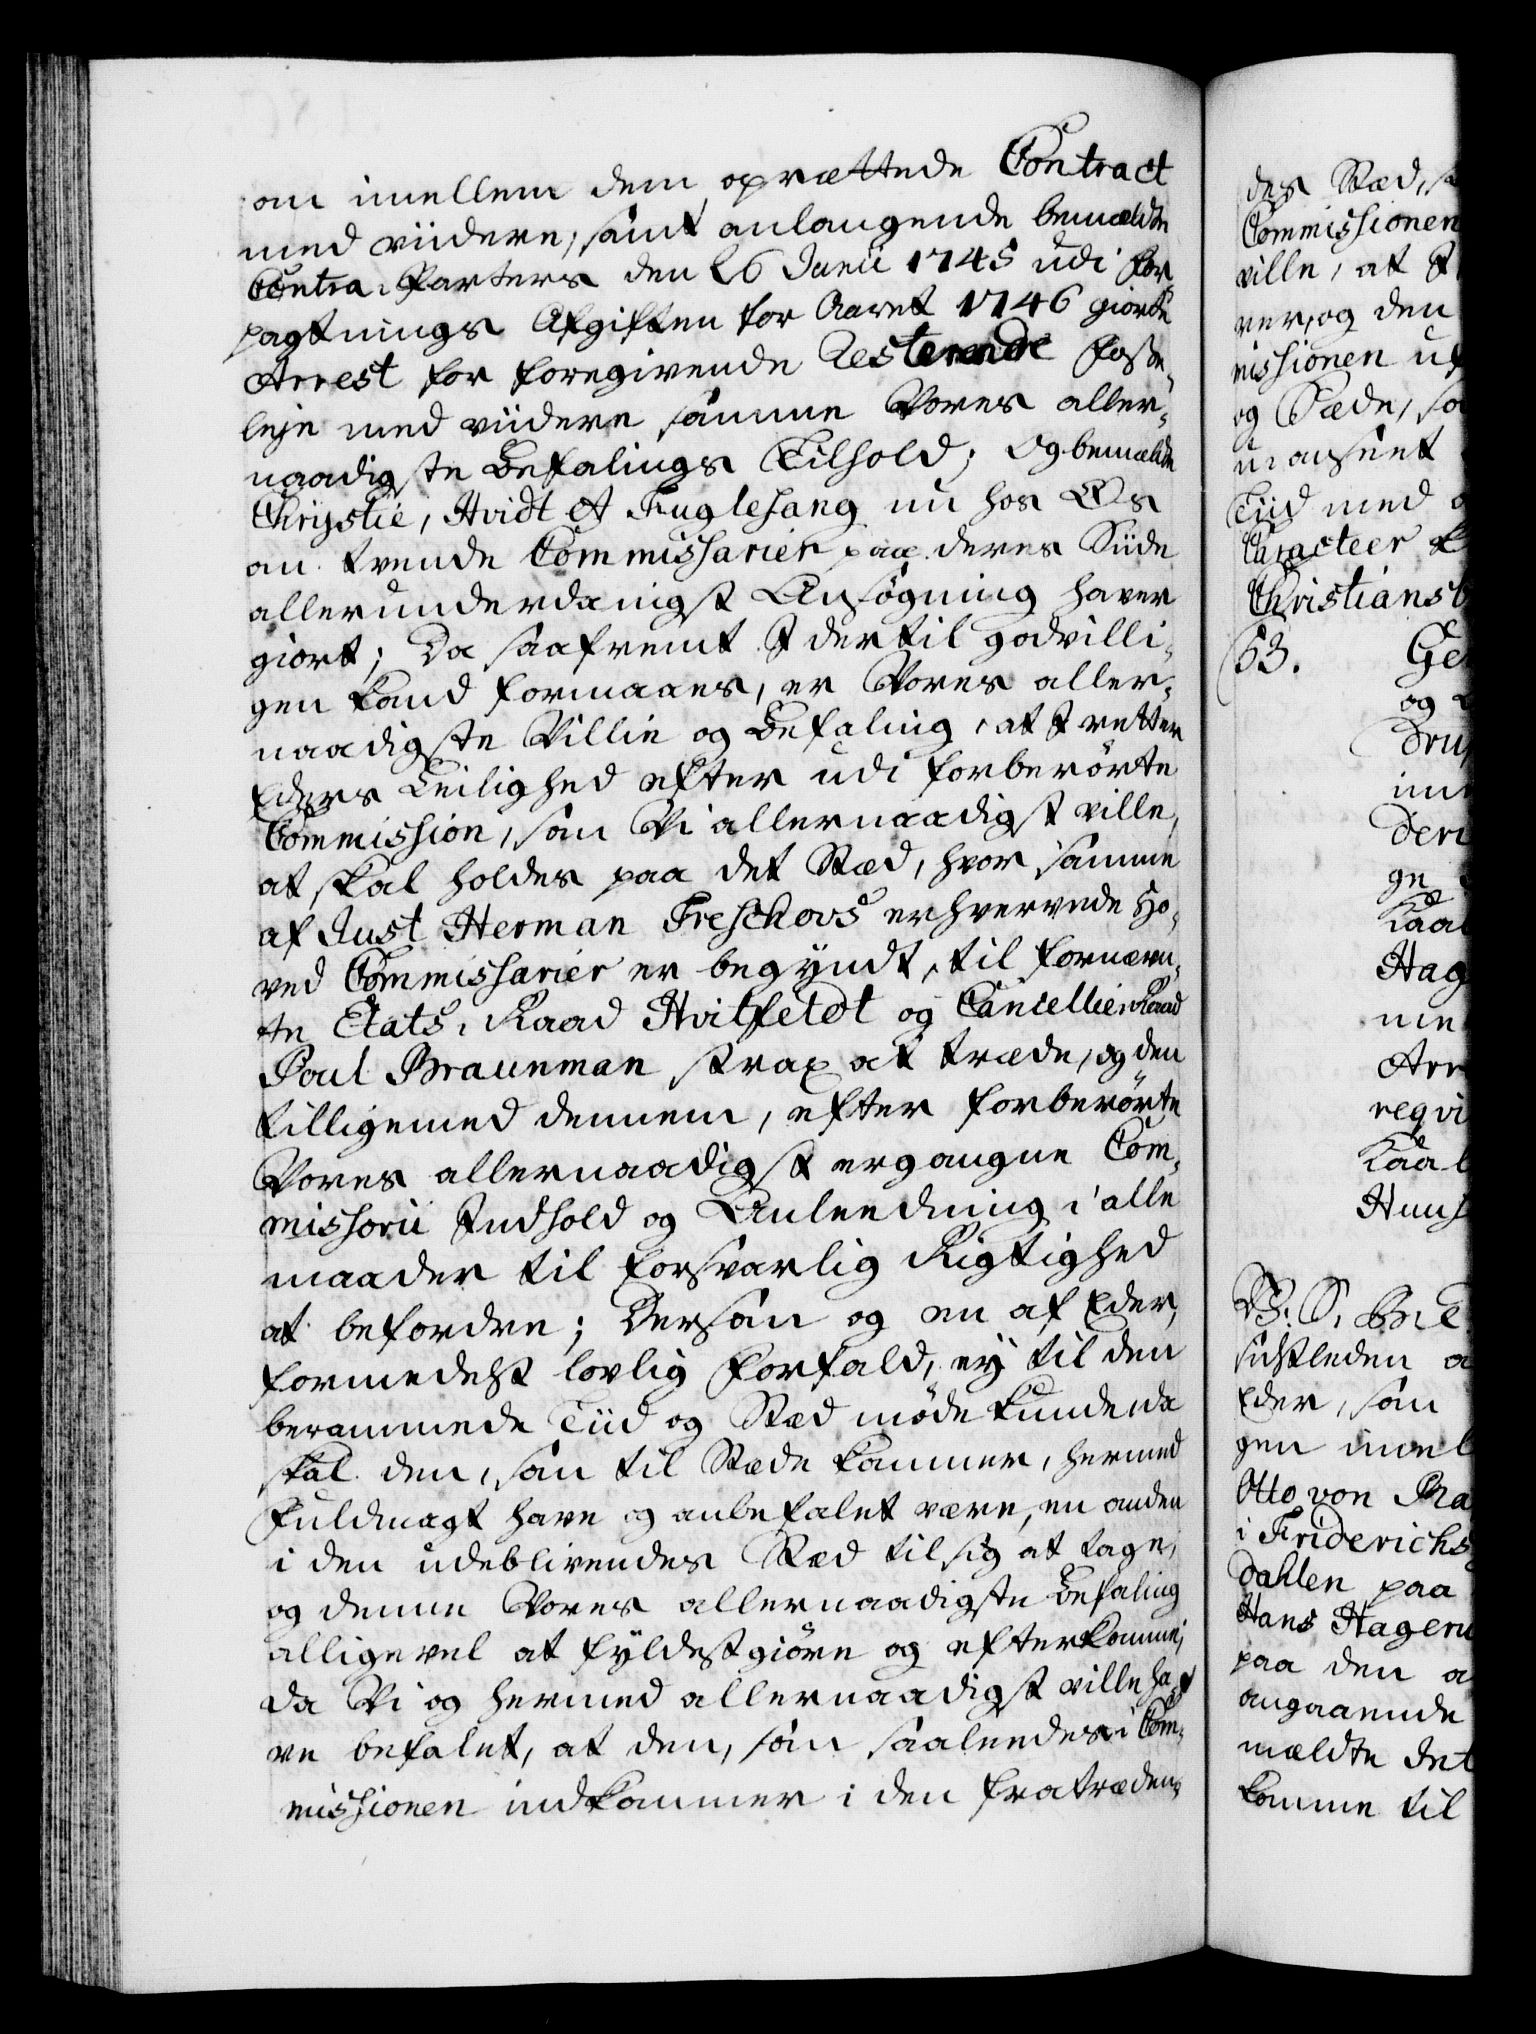 om imellem dem oprættede Contract
med viidere, samt anlangende bemældte
Contra-Parters den 26 Junii 1745 udi For¬
pagtnings Afgiften for Aaret 1746 giorte
Arrest for foregivende Resterende Fosse¬
leje med viidere samme Vores aller¬
naadigste Befalings Tilhold; Og bemældte
Chrystie, Hvidt et Fuglesang nu hos Os
om tvende Commissarier paa deres Siide
allerunderdanigst Ansøgning haver
giort; Da saafremt I dertil godvilli¬
gen kand formaaes, er Vores aller¬
naadigste Villie og Befaling, at I retter
Eders Leilighed efter udi forberörte
Commission, som Vi allernaadigst ville,
at skal holdes paa det Stæd, hvor samme
af Just Herman Treschovs erhvervede Ho¬
ved Commissarier er begyndt, til fornævn¬
te Etats-Raad Hvitfeldt og Cancellie-Raad
Poul Braunman strax at træde, og den
tilligemed dennem, efter forberörte
Vores allernaadigst ergangne Com¬
missorii Indhold og Anleedning i alle
maader til forsvarlig Rigtighed
at befordre; Dersom og en af Eder,
formedelst lovlig Forfald, ey til den
berammede Tiid og Stæd möde kunde, da
skal den, som til Stæde kommer, hermed
Fuldmagt have og anbefalet være, en anden
i den udeblivendes Stæd til sig at tage,
og denne Vores allernaadigste Befaling
alligevel at fyldestgiöre og efterkomme,
da Vi og hermed allernaadigst ville ha¬
ve befalet, at den, som saaleedes i Com¬
missionen indkommer i den fratrædens
des Stæd, s
Commissionen
ville, at I
ver, og den
missionen uf
og Sæde, so
uanseet
Tiid med
Caracteer
Christiansb
53. Ge
og
Dru
im
Deri
ge
Kaal
Hag
me
Arr
reqvi
Kaal
Huus
sidstleden a
Eder, som
gen imel
Otto von Ra
i Friderichs
Dahlen paa
Hans Hageru
paa den a
angaaende
mældte
komme til